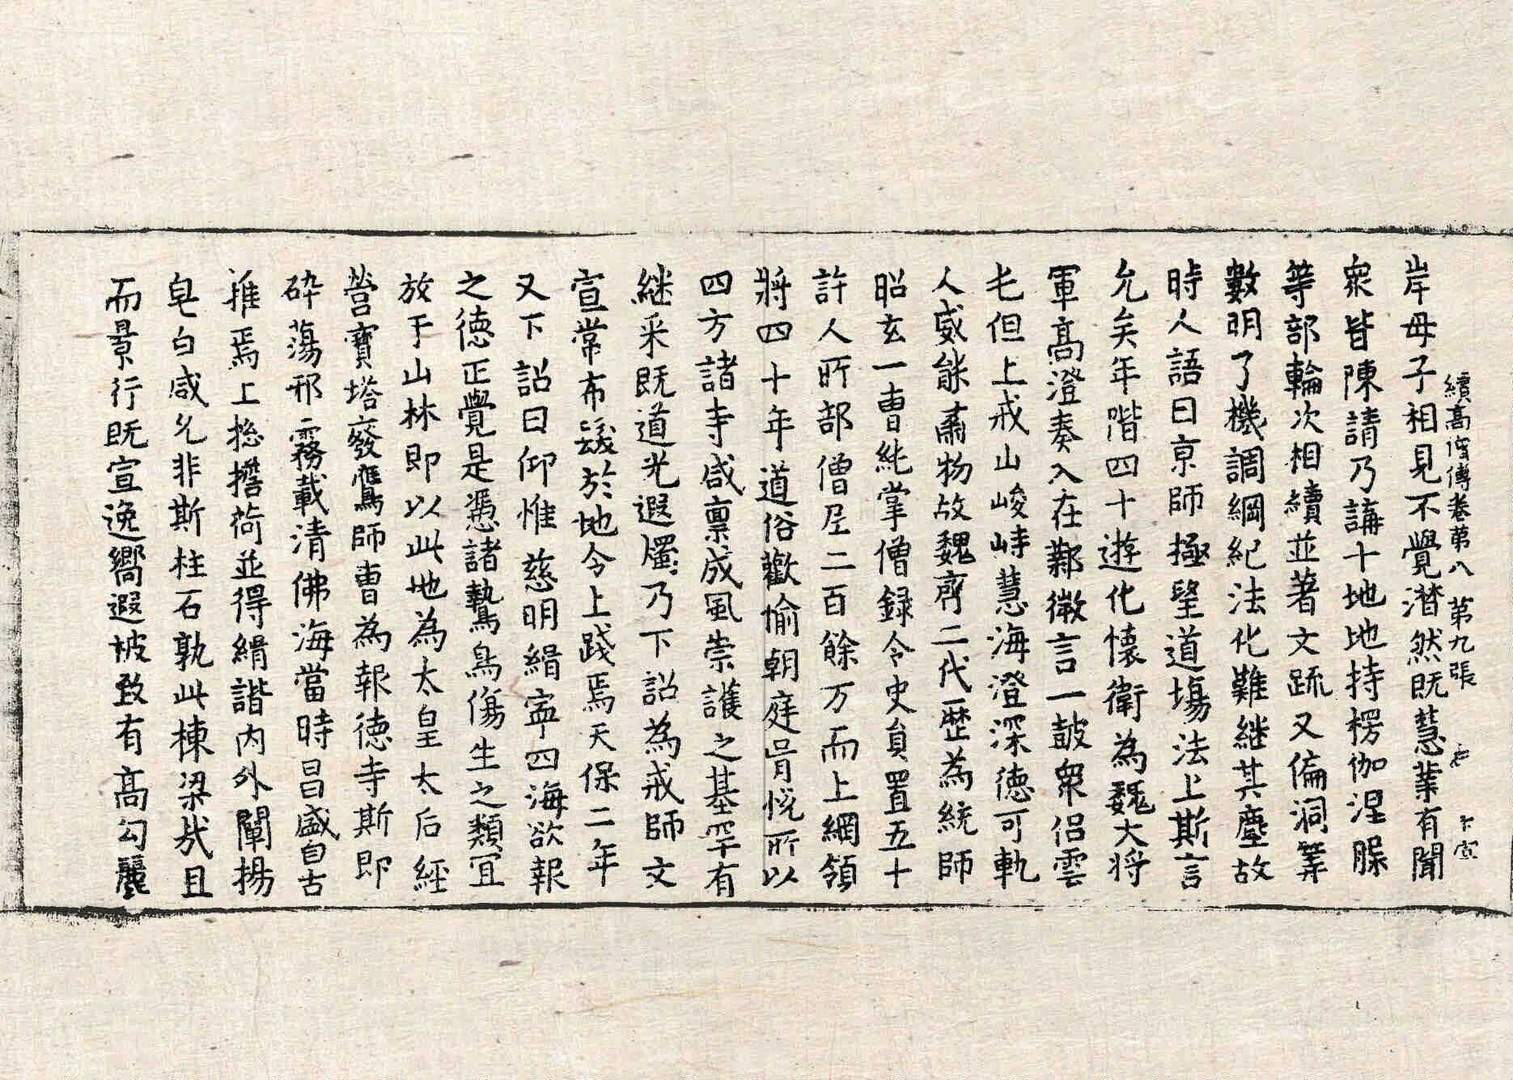 續高僧傳卷第八 第九張
岸母子相見不覺潛然既慧業有聞
衆皆陳請乃講十地地持楞伽涅槃
等部輪次相續並著文疏又偏洞筭
數明了機調綱紀法化難継其塵故
時人語曰京師極望道場法上斯言
允矣年階四十遊化懷衛為魏大將
軍高澄奏入在鄴微言一皷衆侶雲
屯但上戒山峻峙慧海澄深德可軌
人威能肅物故魏齊二代歴為統師
昭玄一曺純掌僧録令史貟置五十
許人所部僧尼二百餘万而上綱領
將四十年道俗歡愉朝庭胥悅所以
四方諸寺咸禀成風崇護之基罕有
継采既道光遐燭乃下詔為戒師文
宣常布髮於地令上踐焉天保二年
又下詔曰仰惟慈明緝寧四海欲報
之德正覺是憑諸鷙鳥傷生之類冝
放于山林即以此地為太皇太后經
營寶塔癈鷹師曹為報德寺斯即
碎蕩邪霧載清佛海當時昌盛自古
推焉上揔擔荷並得緝諧內外闡揚
皂白咸允非斯柱石孰此棟梁㢤且
而景行既宣逸嚮遐被致有高勾麗